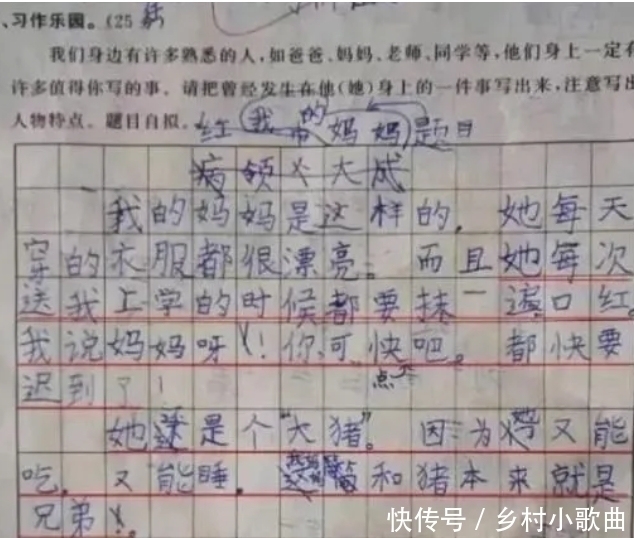 、习作乐园。(25
我们身边有许多熟悉的人,如爸爸、妈妈、老师、同学等,他们身上一定有
许多值得你写的事。请把曾经发生在他(她)身上的一件事写出来,注意写出
人物特点。题目自拟。
我的妈妈 题目
大成
我的妈妈是这样的。她每天
穿的衣服都很漂亮。而且她每次
送我上学的时候都要抹一遍口红。
我说妈妈呀!你可快点吧。都快要
迟到了!
她还是个“大猪”。因为她又能
吃,又能睡。和猪本来就是
兄弟
快传号/乡村小歌曲